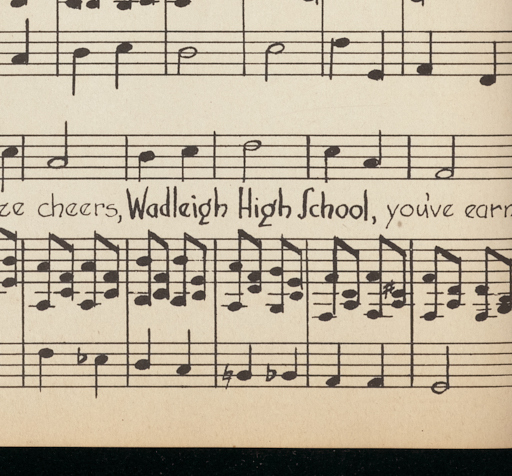 cheers, Wadleigh High School, you've earn